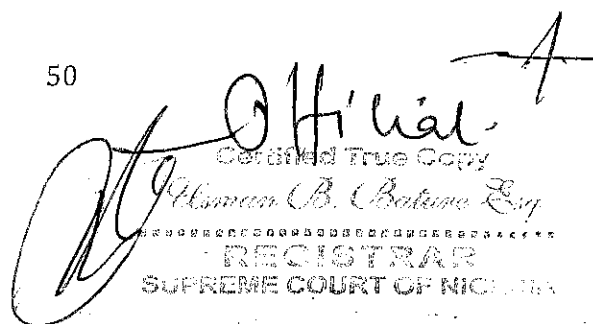 50
Official
Certified True Copy
Usman B. Bature Esq
REGISTRAR
SUPREME COURT OF